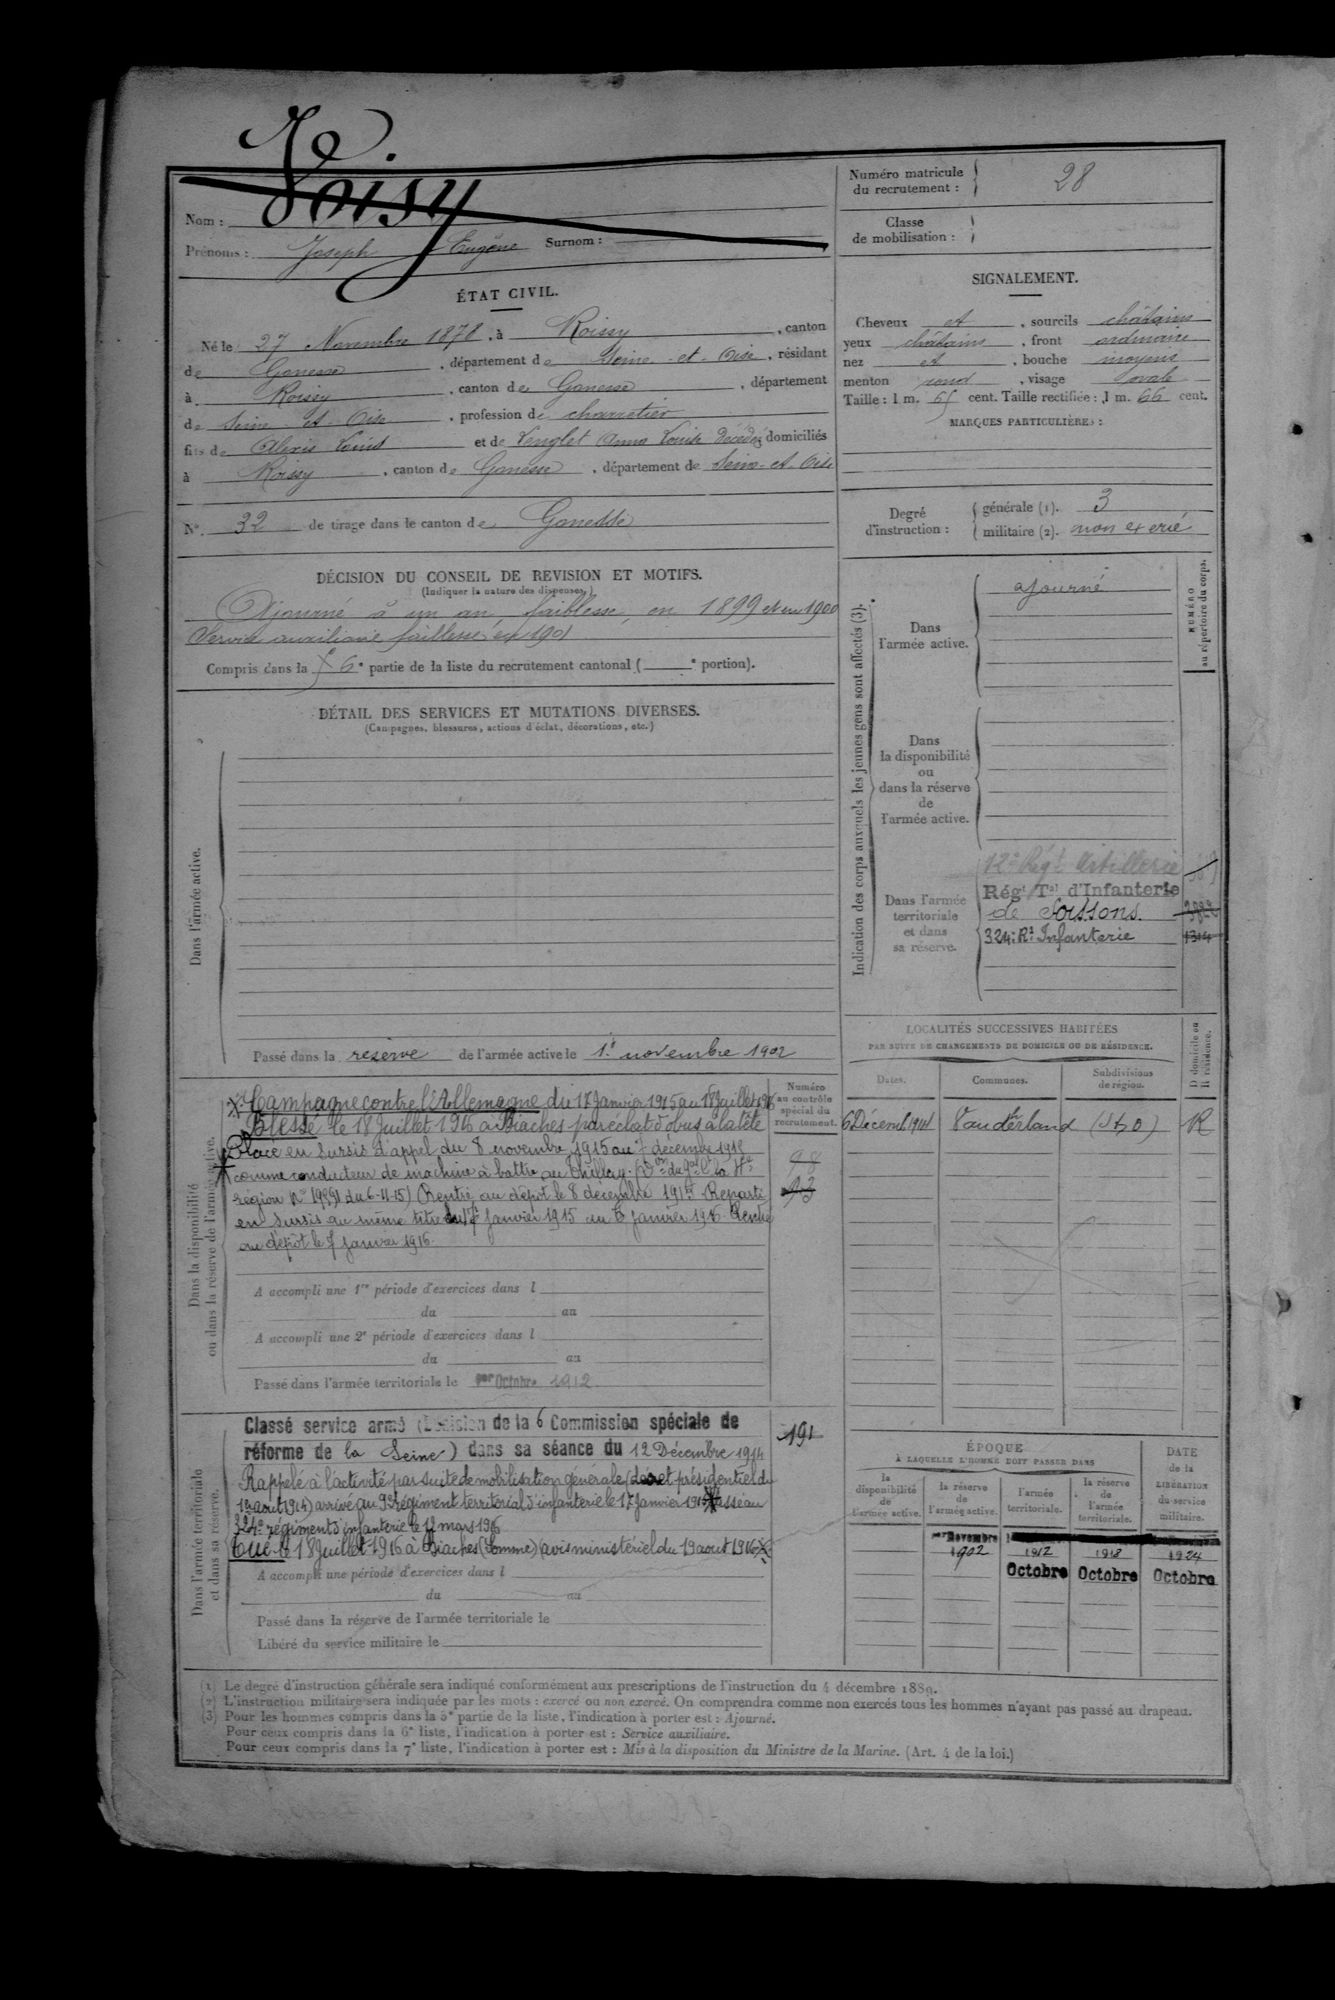 Nom : Voisy
Prénoms : Joseph Eugène Surnom :
Numéro matricule du recrutement : 28
Classe de mobilisation :
ÉTAT CIVIL.
Né le 27 Novembre 1878, à Roissy, canton
de Gonesse, département de Seine-et-Oise, résidant
à Roissy, canton de Gonesse, département
de Seine-et-Oise, profession de charretier
fils de Alexis Louis et de Lenglet Anna Louise décédée domiciliés
à Roissy, canton de Gonesse, département de Seine-et-Oise
N° 32 de tirage dans le canton de Gonesse
SIGNALEMENT.
Cheveux et, sourcils châtains
yeux châtains, front ordinaire
nez et, bouche moyens
menton rond, visage ovale
Taille : 1 m. 65 cent. Taille rectifiée : 1 m. 66 cent.
MARQUES PARTICULIÈRES :
Degré d'instruction : générale (1). 3
militaire (2). non exercé
DÉCISION DU CONSEIL DE REVISION ET MOTIFS.
(Indiquer la nature des dispenses.)
Ajourné à un an faiblesse, en 1899 et en 1900
Service auxiliaire faiblesse en 1901
Compris dans la 6e partie de la liste du recrutement cantonal ( e portion).
DÉTAIL DES SERVICES ET MUTATIONS DIVERSES.
(Campagnes, blessures, actions d'éclat, décorations, etc.)
Dans l'armée active.
Passé dans la réserve de l'armée active le 1er novembre 1902
Indication des corps auxquels les jeunes gens sont affectés (3).
NUMÉRO au répertoire du corps.
Dans l'armée active.
ajourné
Dans la disponibilité ou dans la réserve de l'armée active.
Dans l'armée territoriale et dans sa réserve.
12e Régt Artillerie
Régt Tal d'Infanterie
de Soissons. 3822
324e Rt Infanterie 1314
LOCALITÉS SUCCESSIVES HABITÉES
PAR SUITE DE CHANGEMENTS DE DOMICILE OU DE RÉSIDENCE.
Dates. Communes. Subdivisions de région. D domicile ou R résidence.
6 Décemb. 1914 Vauderland (S & O) R
Dans la disponibilité ou dans la réserve de l'armée active.
Numéro au contrôle spécial du recrutement.
Campagne contre l'Allemagne du 17 Janvier 1915 au 18 juillet 1916
Blessé le 18 Juillet 1916 à Biaches par éclat d'obus à la tête
Placé en sursis d'appel du 8 novembre 1915 au 7 décembre 1915
comme conducteur de machine à battre au Thillay.
région N° du 6-11-15) Rentré au dépôt le 8 décembre 1915 Reparti
en sursis au même titre du 7 Janvier 1915 au 6 Janvier 1916. Rentré
au dépôt le 7 janvier 1916.
98
A accompli une 1re période d'exercices dans l
du au
A accompli une 2e période d'exercices dans l
du au
Passé dans l'armée territoriale le 1er Octobre 1912
Dans l'armée territoriale et dans sa réserve.
Classé service armé (Décision de la 6 Commission spéciale de
réforme de la Seine) dans sa séance du 12 Décembre 1914
191
Rappelé à l'activité par suite de mobilisation générale (décret présidentiel du
1er aout 1914) arrivé au 9e régiment territorial d'infanterie le 17 Janvier 1915 Passé au
324e régiment d'infanterie le 12 mars 1916
Tué le 18 Juillet 1916 à Biaches (Somme) (avis ministériel du 19 aout 1916)
A accompli une période d'exercices dans l
du au
Passé dans la réserve de l'armée territoriale le
Libéré du service militaire le
ÉPOQUE
À LAQUELLE L'HOMME DOIT PASSER DANS
la disponibilité de l'armée active. la réserve de l'armée active. l'armée territoriale. la réserve de l'armée territoriale.
DATE de la LIBÉRATION du service militaire.
1er Novembre 1902 1912 Octobre 1918 Octobre 1924 Octobre
(1) Le degré d'instruction générale sera indiqué conformément aux prescriptions de l'instruction du 4 décembre 1889.
(2) L'instruction militaire sera indiquée par les mots : exercé ou non exercé. On comprendra comme non exercés tous les hommes n'ayant pas passé au drapeau.
(3) Pour les hommes compris dans la 5e partie de la liste, l'indication à porter est : Ajourné.
Pour ceux compris dans la 6e liste, l'indication à porter est : Service auxiliaire.
Pour ceux compris dans la 7e liste, l'indication à porter est : Mis à la disposition du Ministre de la Marine. (Art. 4 de la loi.)